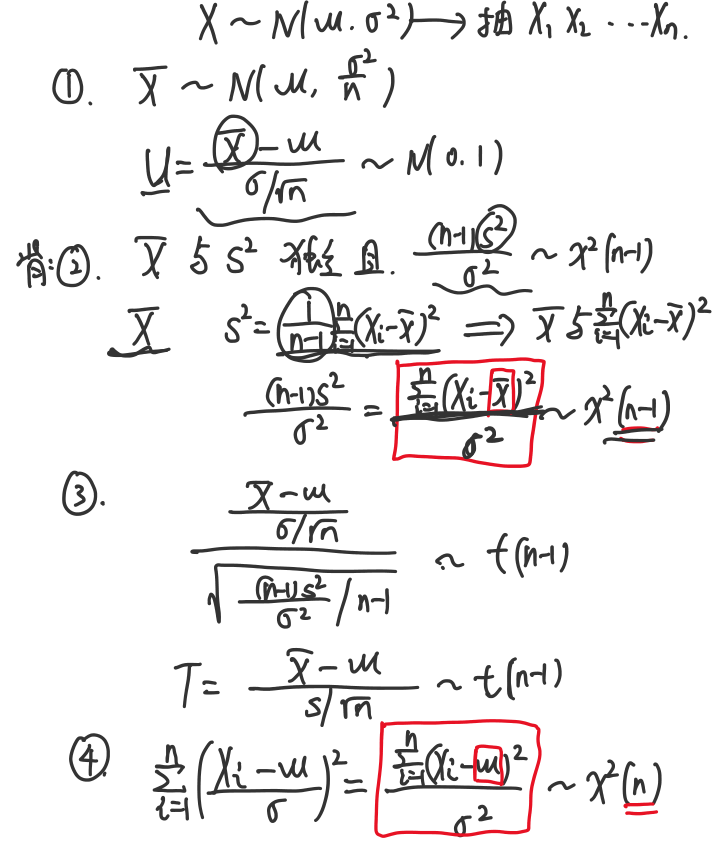 X ~ N(μ. σ²) → 抽 X₁ X₂ ⋯ Xₙ.
①. X̄ ~ N(μ, σ²/n)
U = (X̄ - μ)/(σ/√n) ~ N(0.1)
背:②. X̄ 与 S² 独立 且. (n-1)S²/σ² ~ χ²(n-1)
X̄ S² = 1/(n-1) ∑ᵢ₌₁ⁿ(Xᵢ-X̄)² ⟹ X̄ 与 ∑ᵢ₌₁ⁿ(Xᵢ-X̄)²
(n-1)S²/σ² = ∑ᵢ₌₁ⁿ(Xᵢ-X̄)²/σ² ~ χ²(n-1)
③. ((X̄-μ)/(σ/√n))/√((n-1)S²/σ² / n-1) ~ t(n-1)
T = (X̄-μ)/(S/√n) ~ t(n-1)
④ ∑ᵢ₌₁ⁿ((Xᵢ-μ)/σ)² = ∑ᵢ₌₁ⁿ(Xᵢ-μ)²/σ² ~ χ²(n)